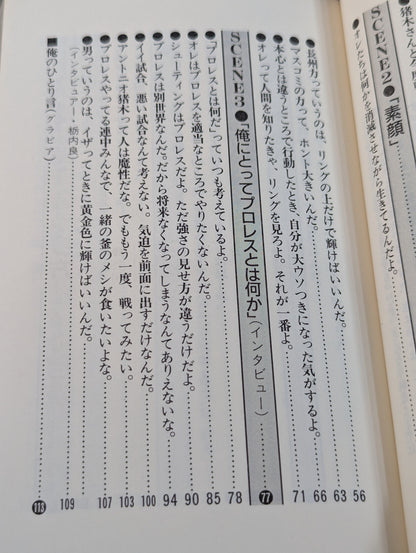 猪
SCENE2●「素顔」
オレたちは何かを消滅させながら生きてるんだよ。
■長州力っていうのは、リングの上だけで輝けばいいんだ。 56
●マスコミの力って、ホント大きいんだ。 63
●本心とは違うところで行動したとき、自分が大ウソつきになった気がするよ。 66
●オレって人間を知りたきゃ、リングを見ろよ。それが一番よ。 71
SCENE3●「俺にとってプロレスとは何か」(インタビュー) 77
●「プロレスとは何だ」っていつも考えている。 78
●オレはプロレスを適当なところでやりたくないんだ。 85
●シューティングはプロレスだよ。ただ強さの見せ方が違うだけだよ。 90
●プロレスは別世界なんだ。だから将来なくなってしまうなんてありえないな。 94
●イイ試合、悪い試合なんて考えない。気迫を前面に出すだけなんだ。 100
●アントニオ猪木って人は魔性だな。でももう一度、戦ってみたい。 103
●プロレスやってる連中みんなで、一緒の釜のメシが食いたいよな。 107
■男っていうのは、イザってときに黄金色に輝けばいいんだ。 109
(インタビュアー・栃内良)
■俺のひとり言(グラビア) 113